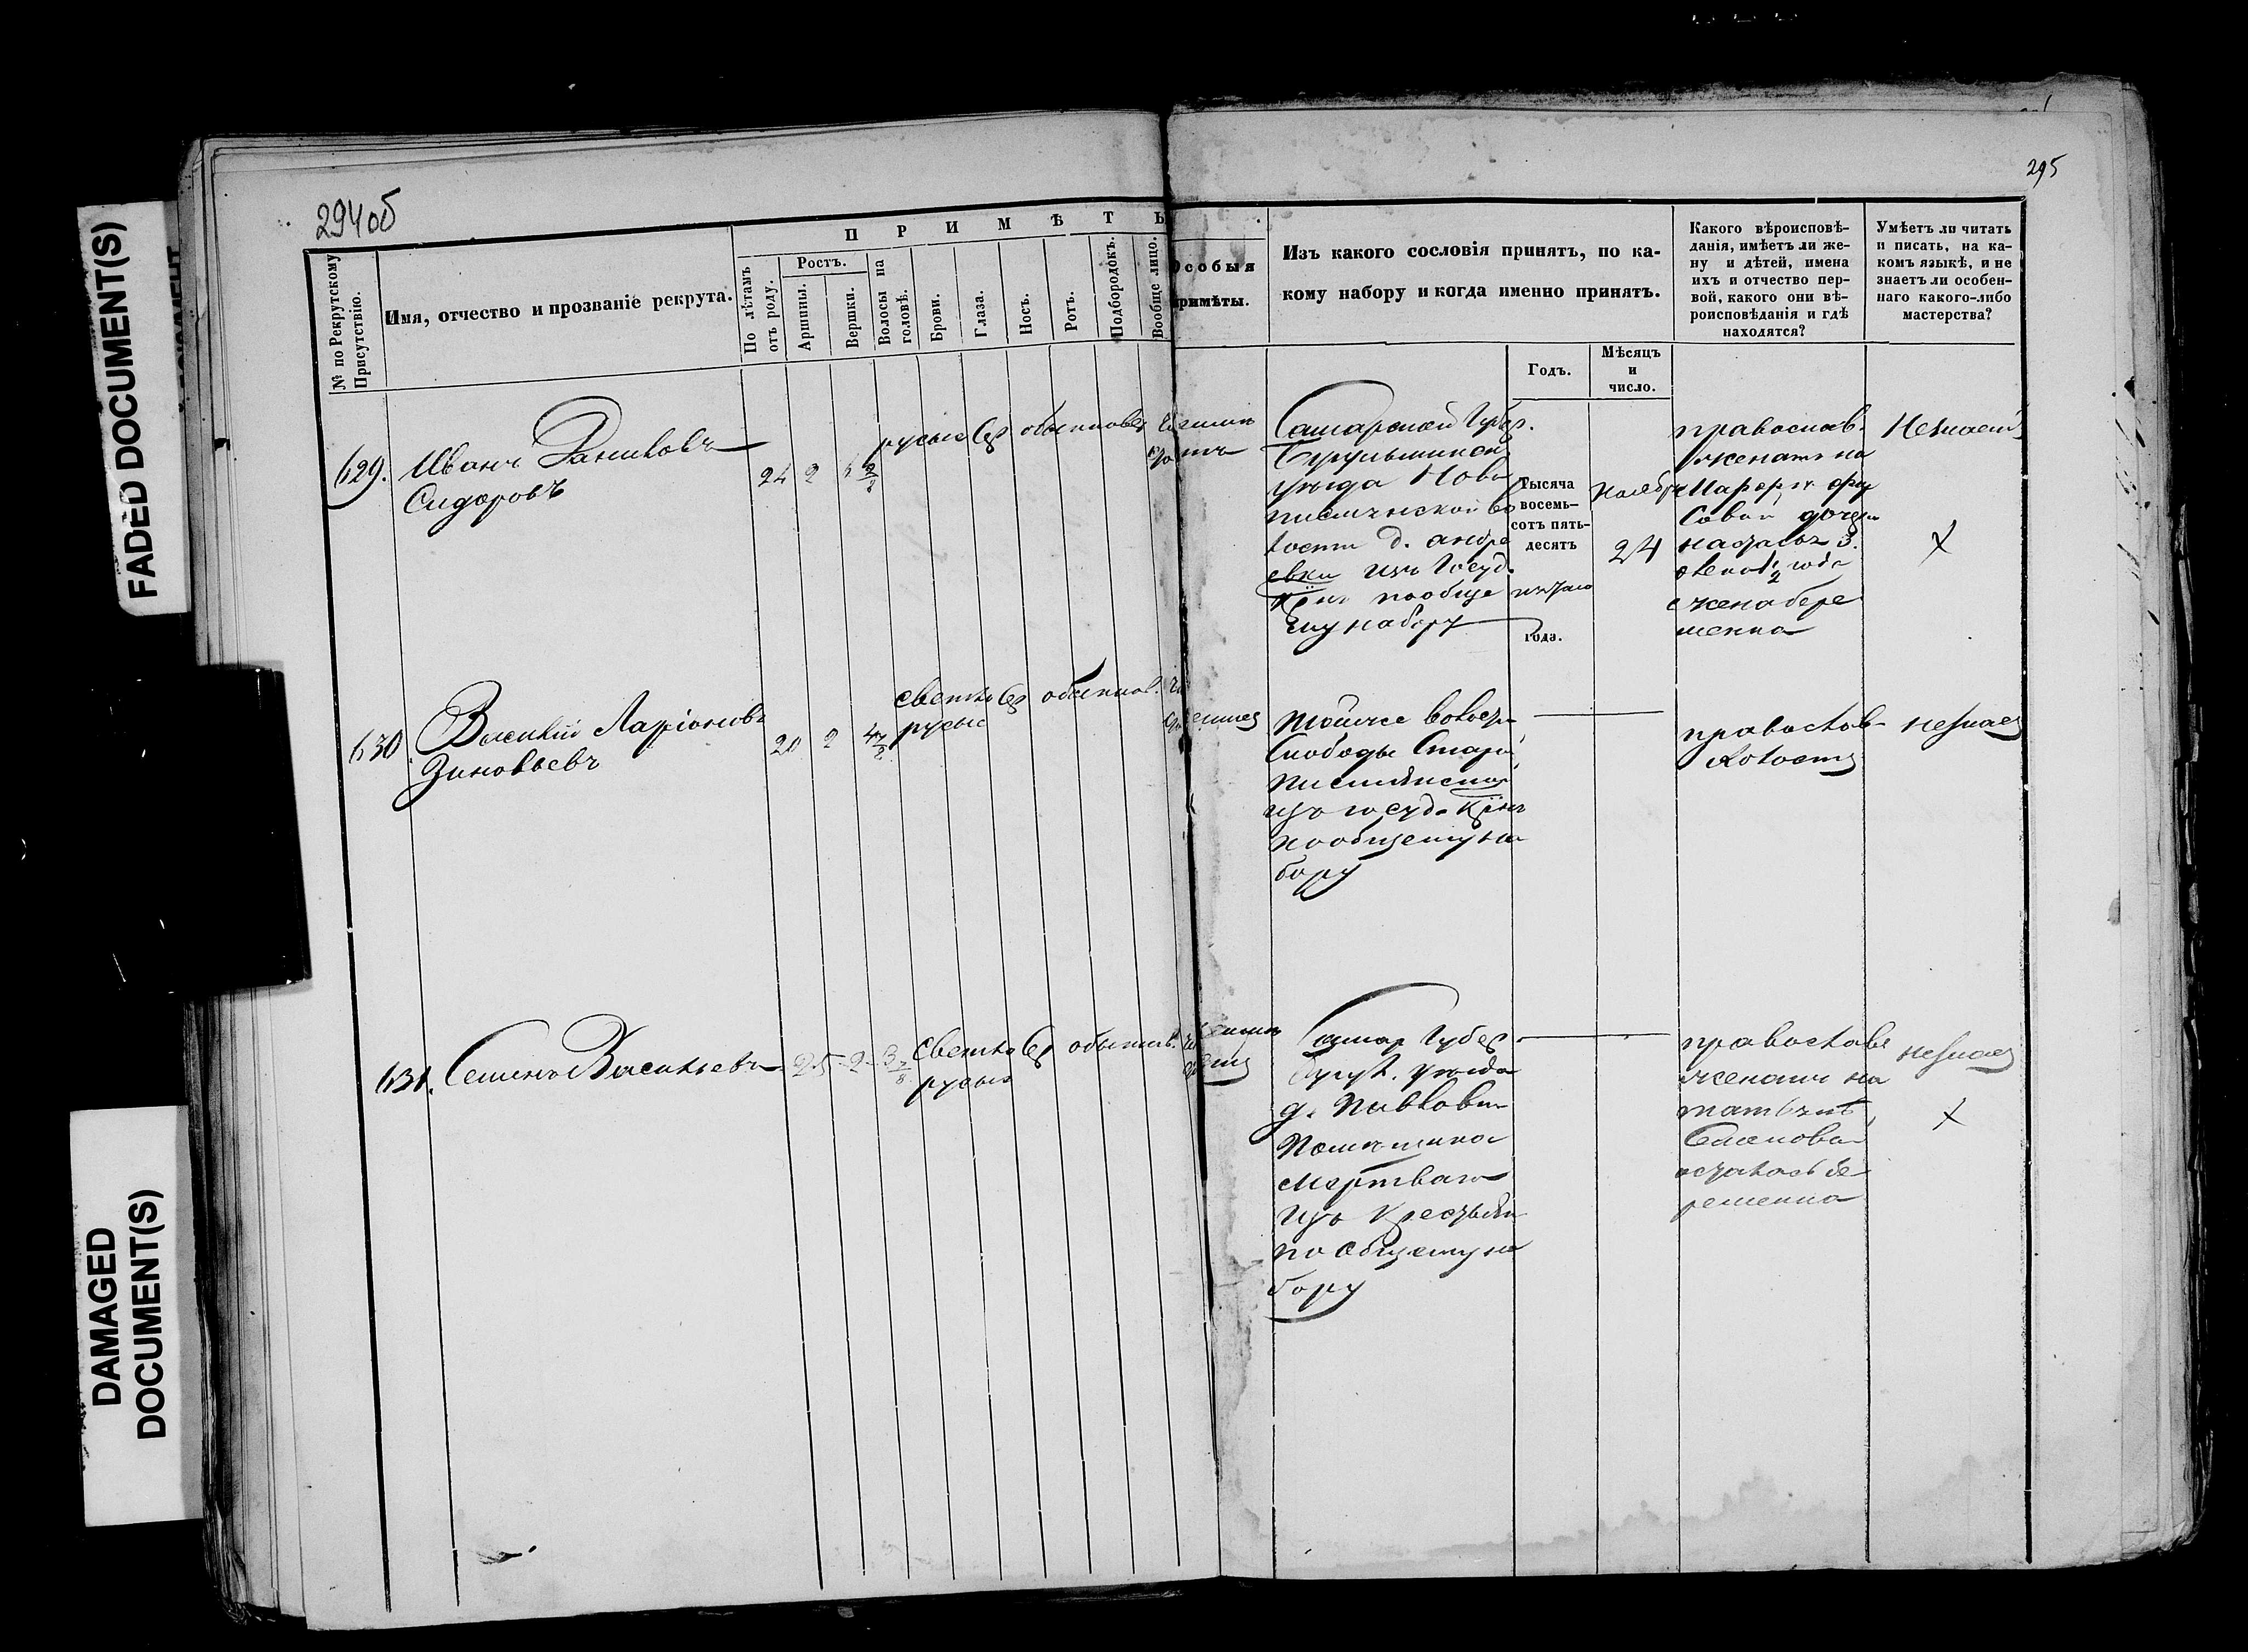 FADED DOCUMENT(S)
DAMAGED
DOCUMENT(S)
294об
295
П Р И М Ѣ Т Ы
№ по Рекрутскому
Присутствію.
Имя, отчество и прозваніе рекрута.
По лѣтамъ
отъ роду.
Ростъ.
Аршины.
Вершки.
Волосы на
головѣ.
Брови.
Глаза.
Носъ.
Ротъ.
Подбородокъ.
Вообще лицо.
Особыя
примѣты.
Изъ какого сословія принятъ, по ка-
кому набору и когда именно принятъ.
Годъ.
Мѣсяцъ
и
число.
Какого вѣроисповѣ-
данія, имѣетъ ли же-
ну и дѣтей, имена
ихъ и отчество пер-
вой, какого они вѣ-
роисповѣданія и гдѣ
находятся?
Умѣетъ ли читать
и писать, на ка-
комъ языкѣ, и не
знаетъ ли особен-
наго какого-либо
мастерства?
629.
Иванъ Даниловъ
Сидоровъ
24 2
русые сер обыкновен
Самарской Губер.
Бугульминск
уѣзда Ново
писмянской во
лости д. андре
евки изъ Госуд.
крѣн пообще
му набору
Тысяча
восемь-
сотъ пять-
десятъ
пятаго
года.
Ноября
24
православ.
женатъ на
дочери
1/2 года
жена бере
менна
Незнаетъ
х
630
Василій Ларіоновъ
Зиновьевъ
20 2 4 7/8
светло сер обыкнов.
русые
тойже волости
Слободы Старой
Писмянской
изъ госуд. крѣн
пообщему на
бору
православ
холостъ
незнаетъ
631.
Семенъ Васильевъ
25 2 3 7/8
светло сер обыкнов.
русые
Самар Губер.
Бугул. уѣзда
д. Павловки
Помѣщика
Мертваго
изъ Крестьян
по общему на
бору
православ
женатъ на
осталась бе
ременна
незнаетъ
х